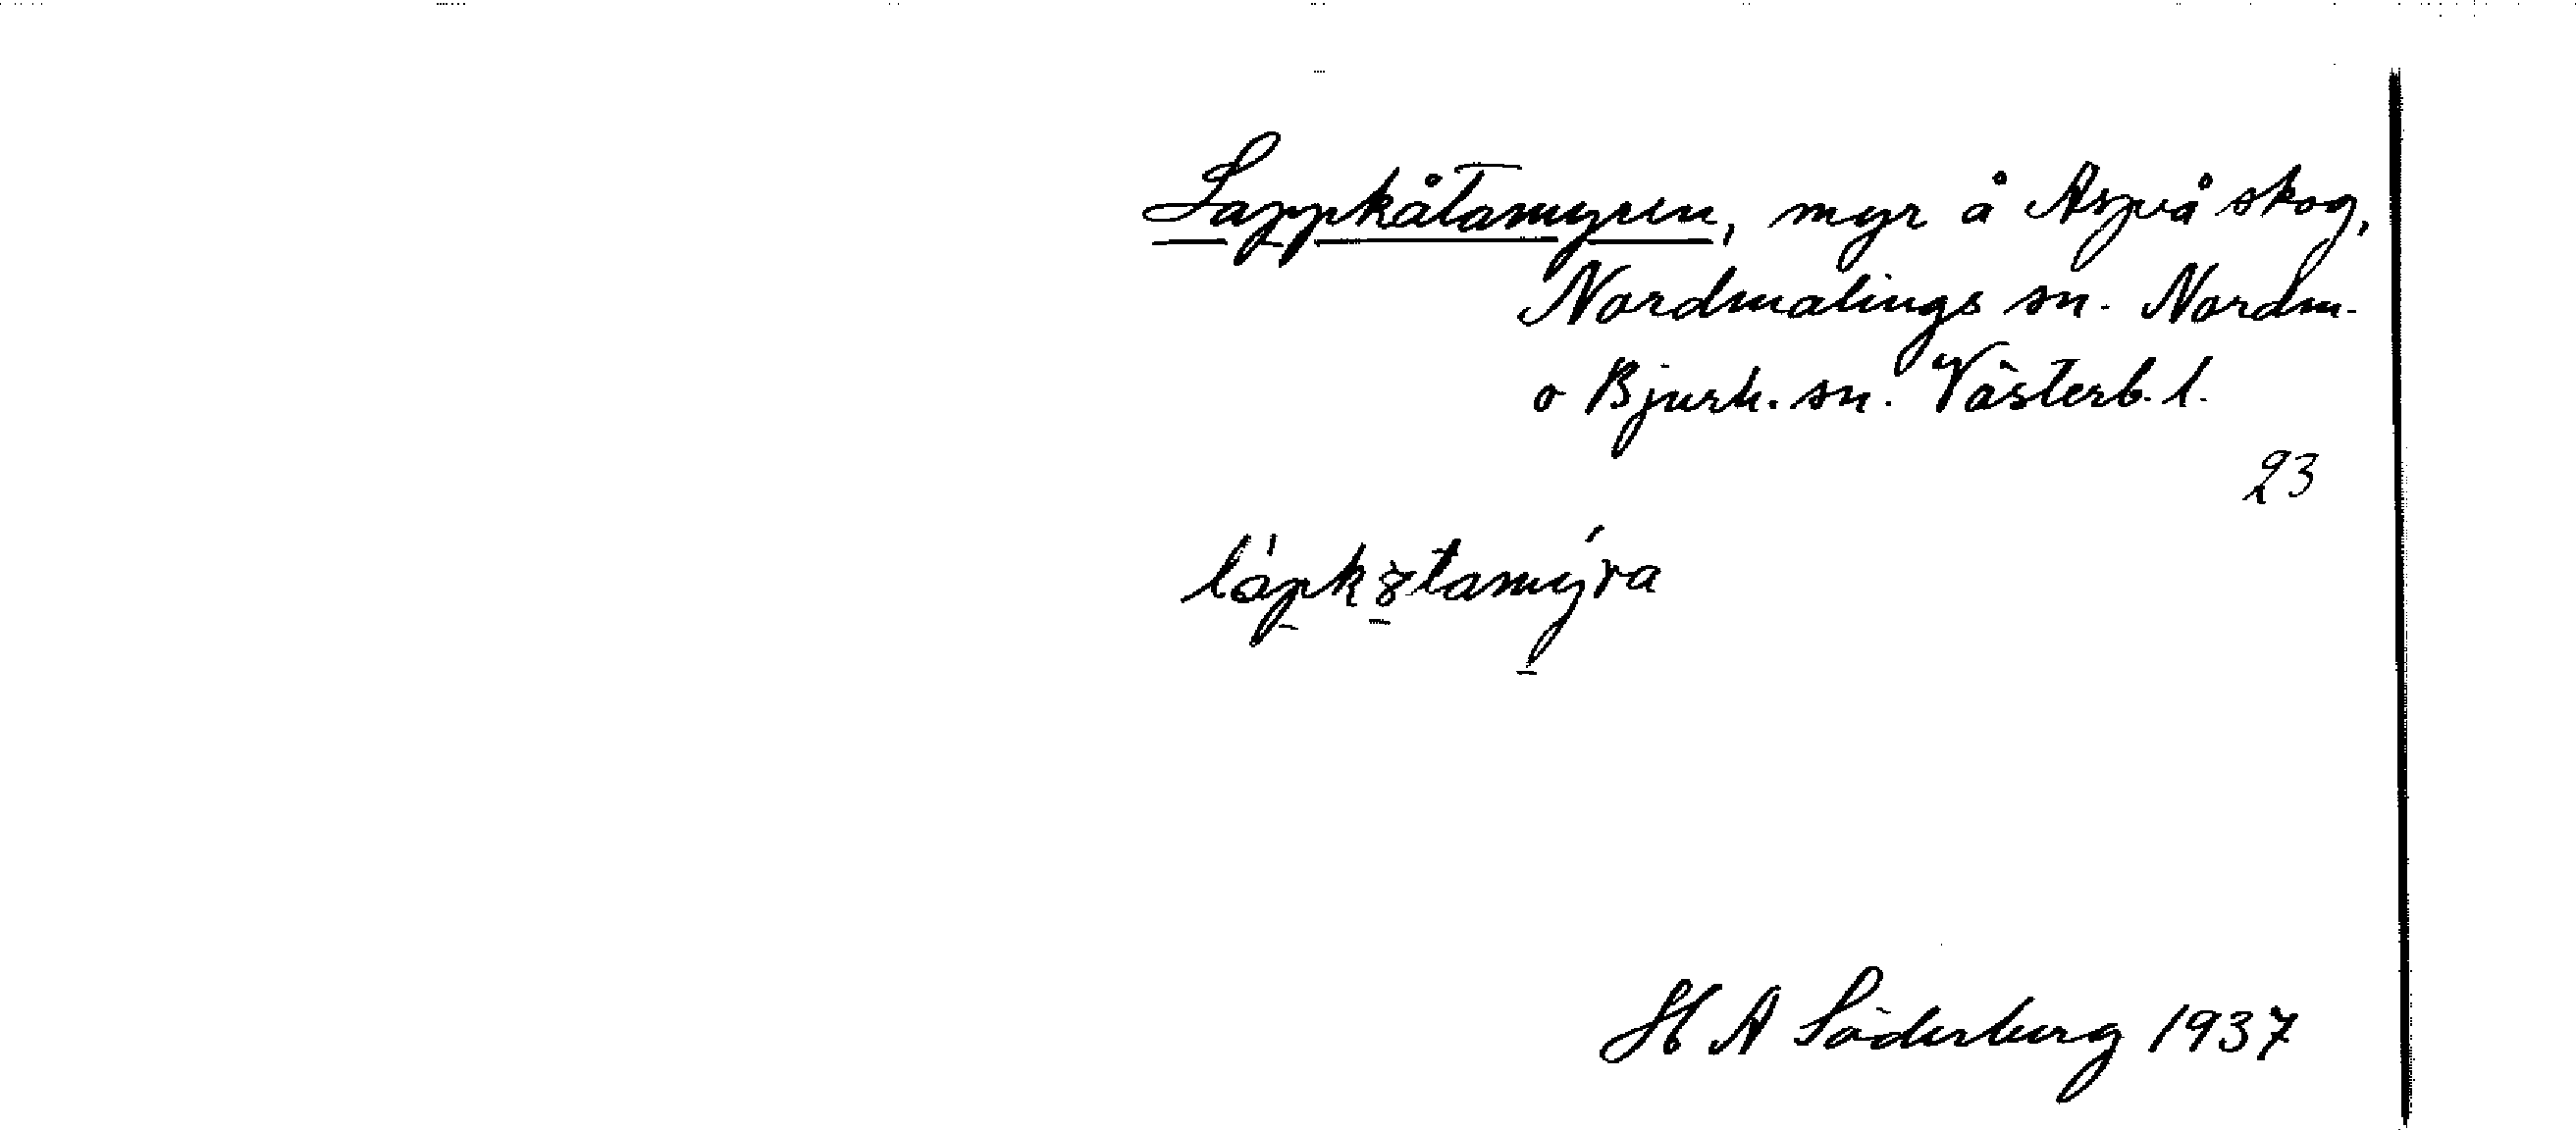 Lappkåtamyren, myr å Aspeå skog,
Nordmalings sn. Nordm.
o Bjurh. sn. Västerb. l.
23
H A Söderberg 1937